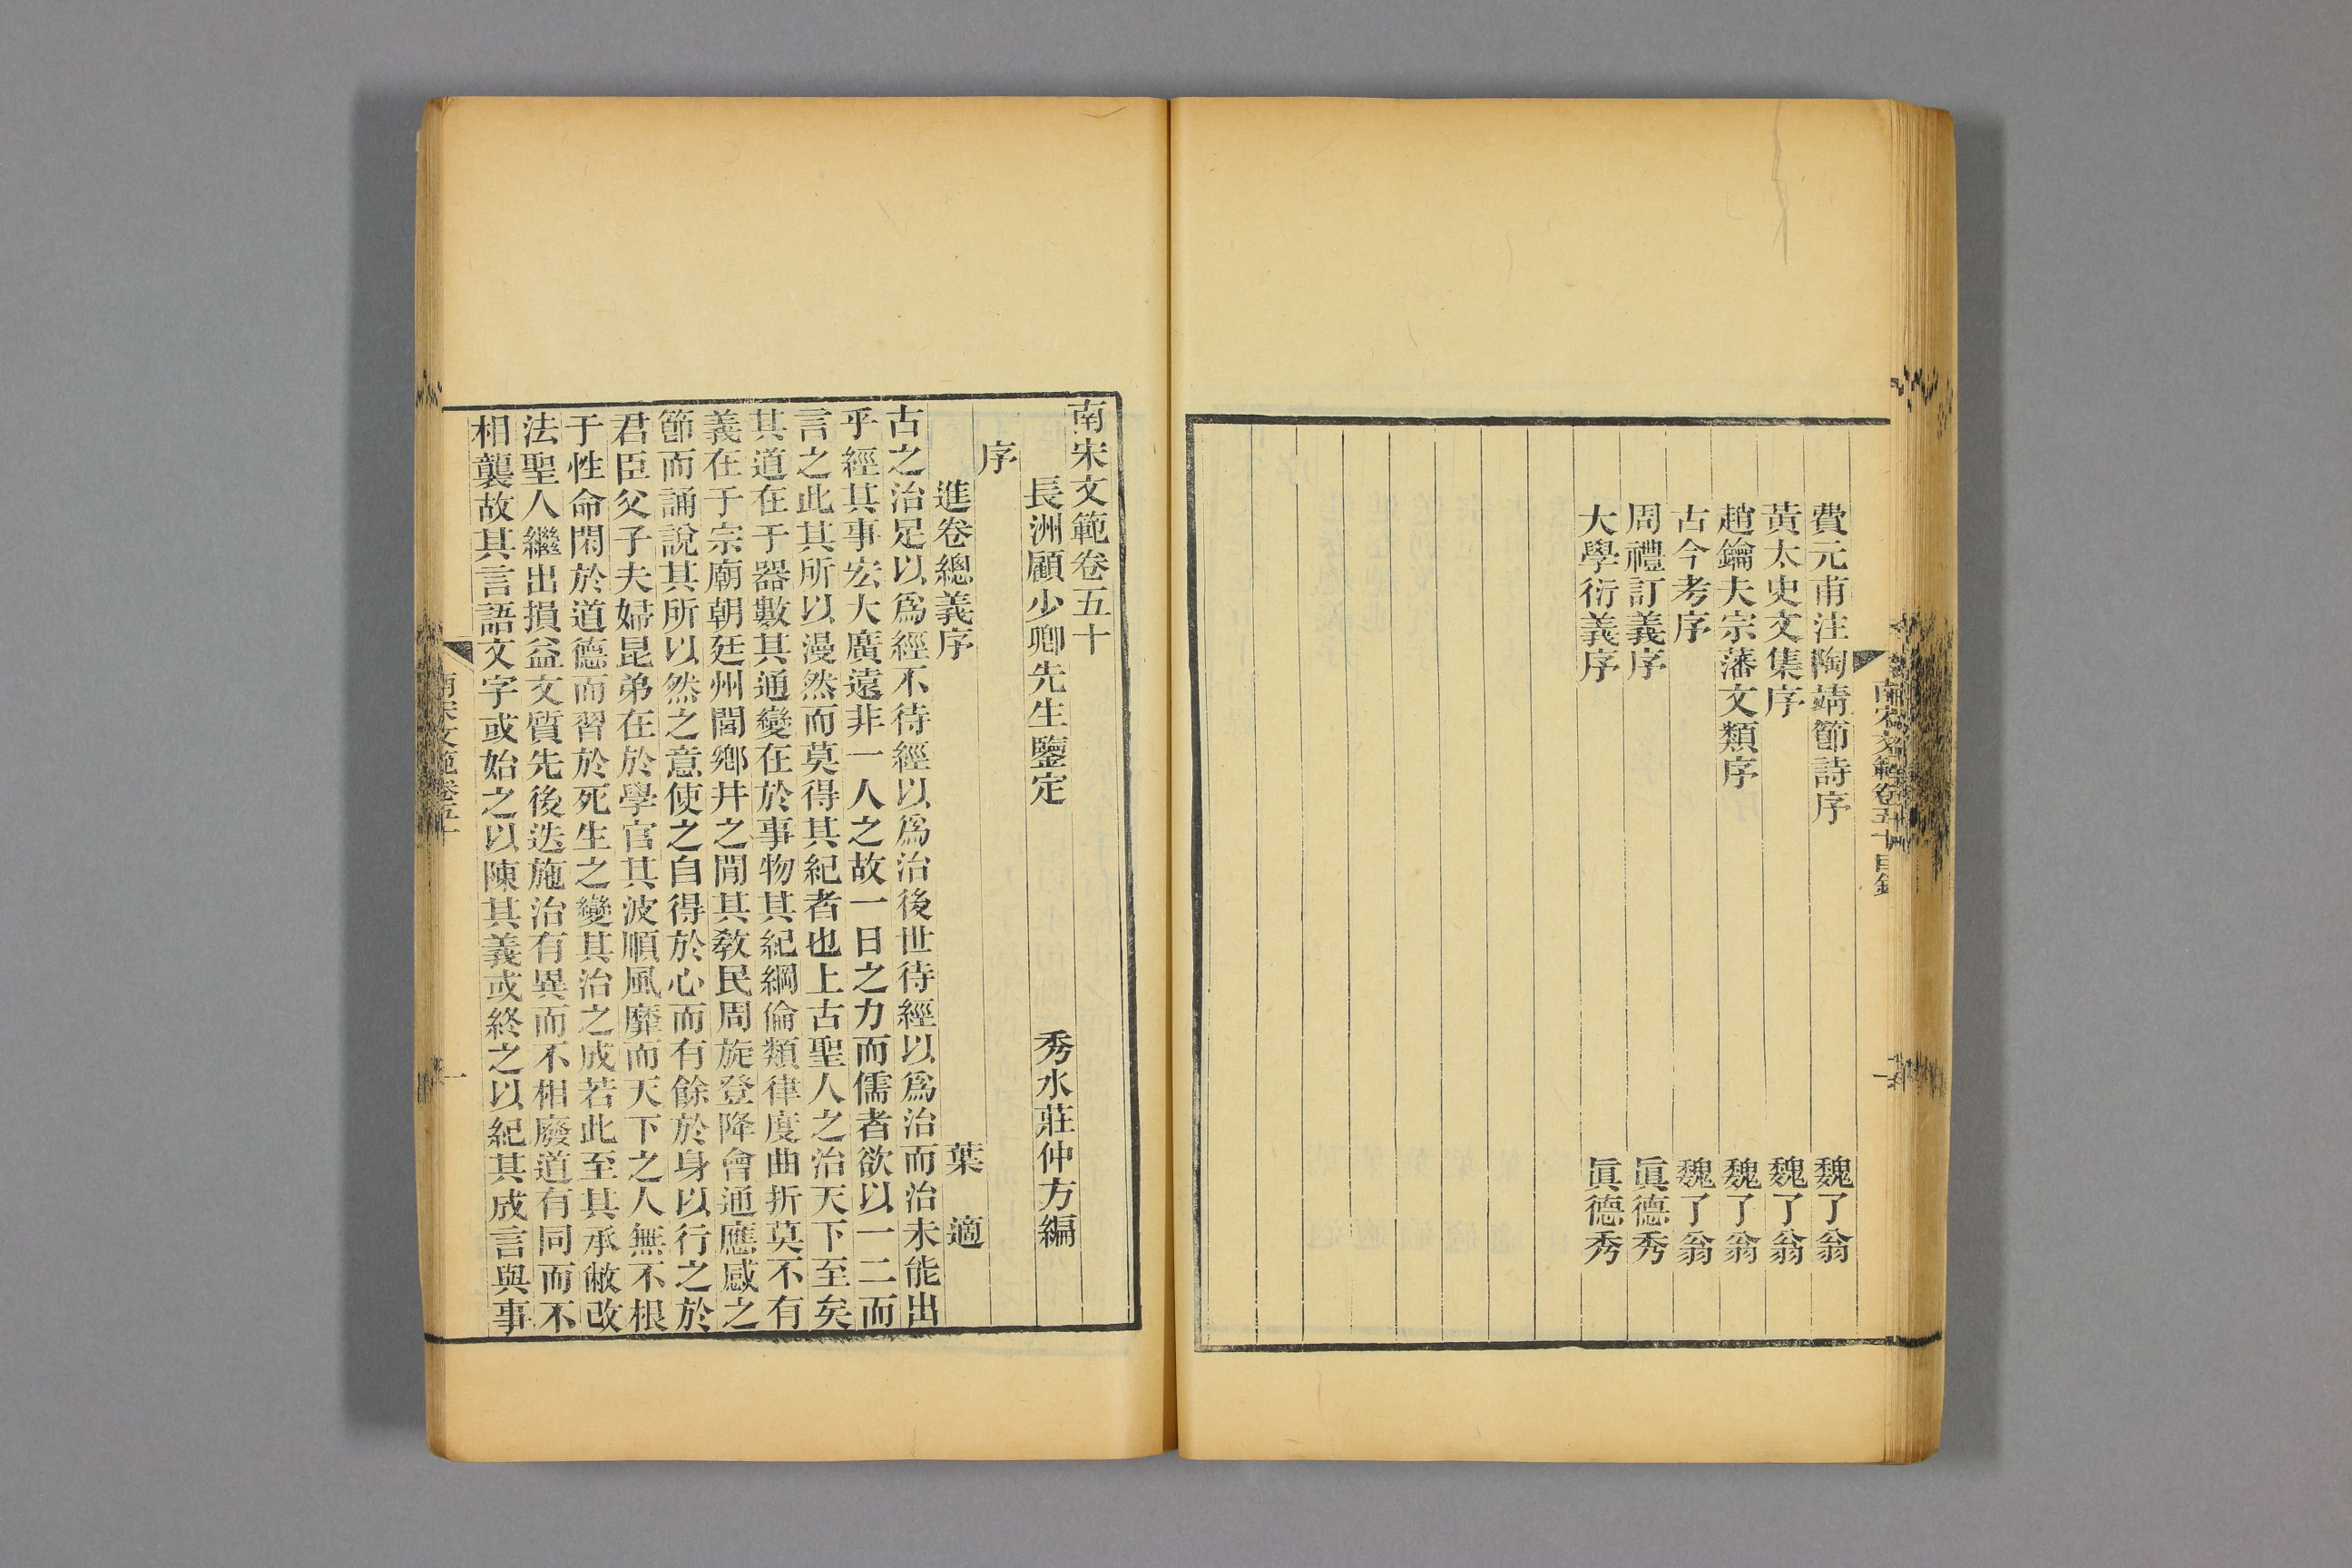 費元甫注陶靖節詩序 魏了翁
黃太史文集序 魏了翁
趙鑰夫宗藩文類序 魏了翁
古今考序 魏了翁
周禮訂義序 眞德秀
大學衍義序 眞德秀
南宋文範卷五十目錄
南宋文範卷五十
長洲顧少卿先生鑒定 秀水莊仲方編
序
進卷總義序 葉適
古之治足以爲經不待經以爲治後世待經以爲治而治未能出
乎經其事宏大廣遠非一人之故一日之力而儒者欲以一二而
言之此其所以漫然而莫得其紀者也上古聖人之治天下至矣
其道在于器數其通變在於事物其紀綱倫類律度曲折莫不有
義在于宗廟朝廷州閭鄉井之閒其敎民周旋登降會通應感之
節而誦說其所以然之意使之自得於心而有餘於身以行之於
君臣父子夫婦昆弟在於學官其波順風靡而天下之人無不根
于性命閑於道德而習於死生之變其治之成若此至其承敝改
法聖人繼出損益文質先後迭施治有異而不相廢道有同而不
相襲故其言語文字或始之以陳其義或終之以紀其成言與事
南宋文範卷五十
一